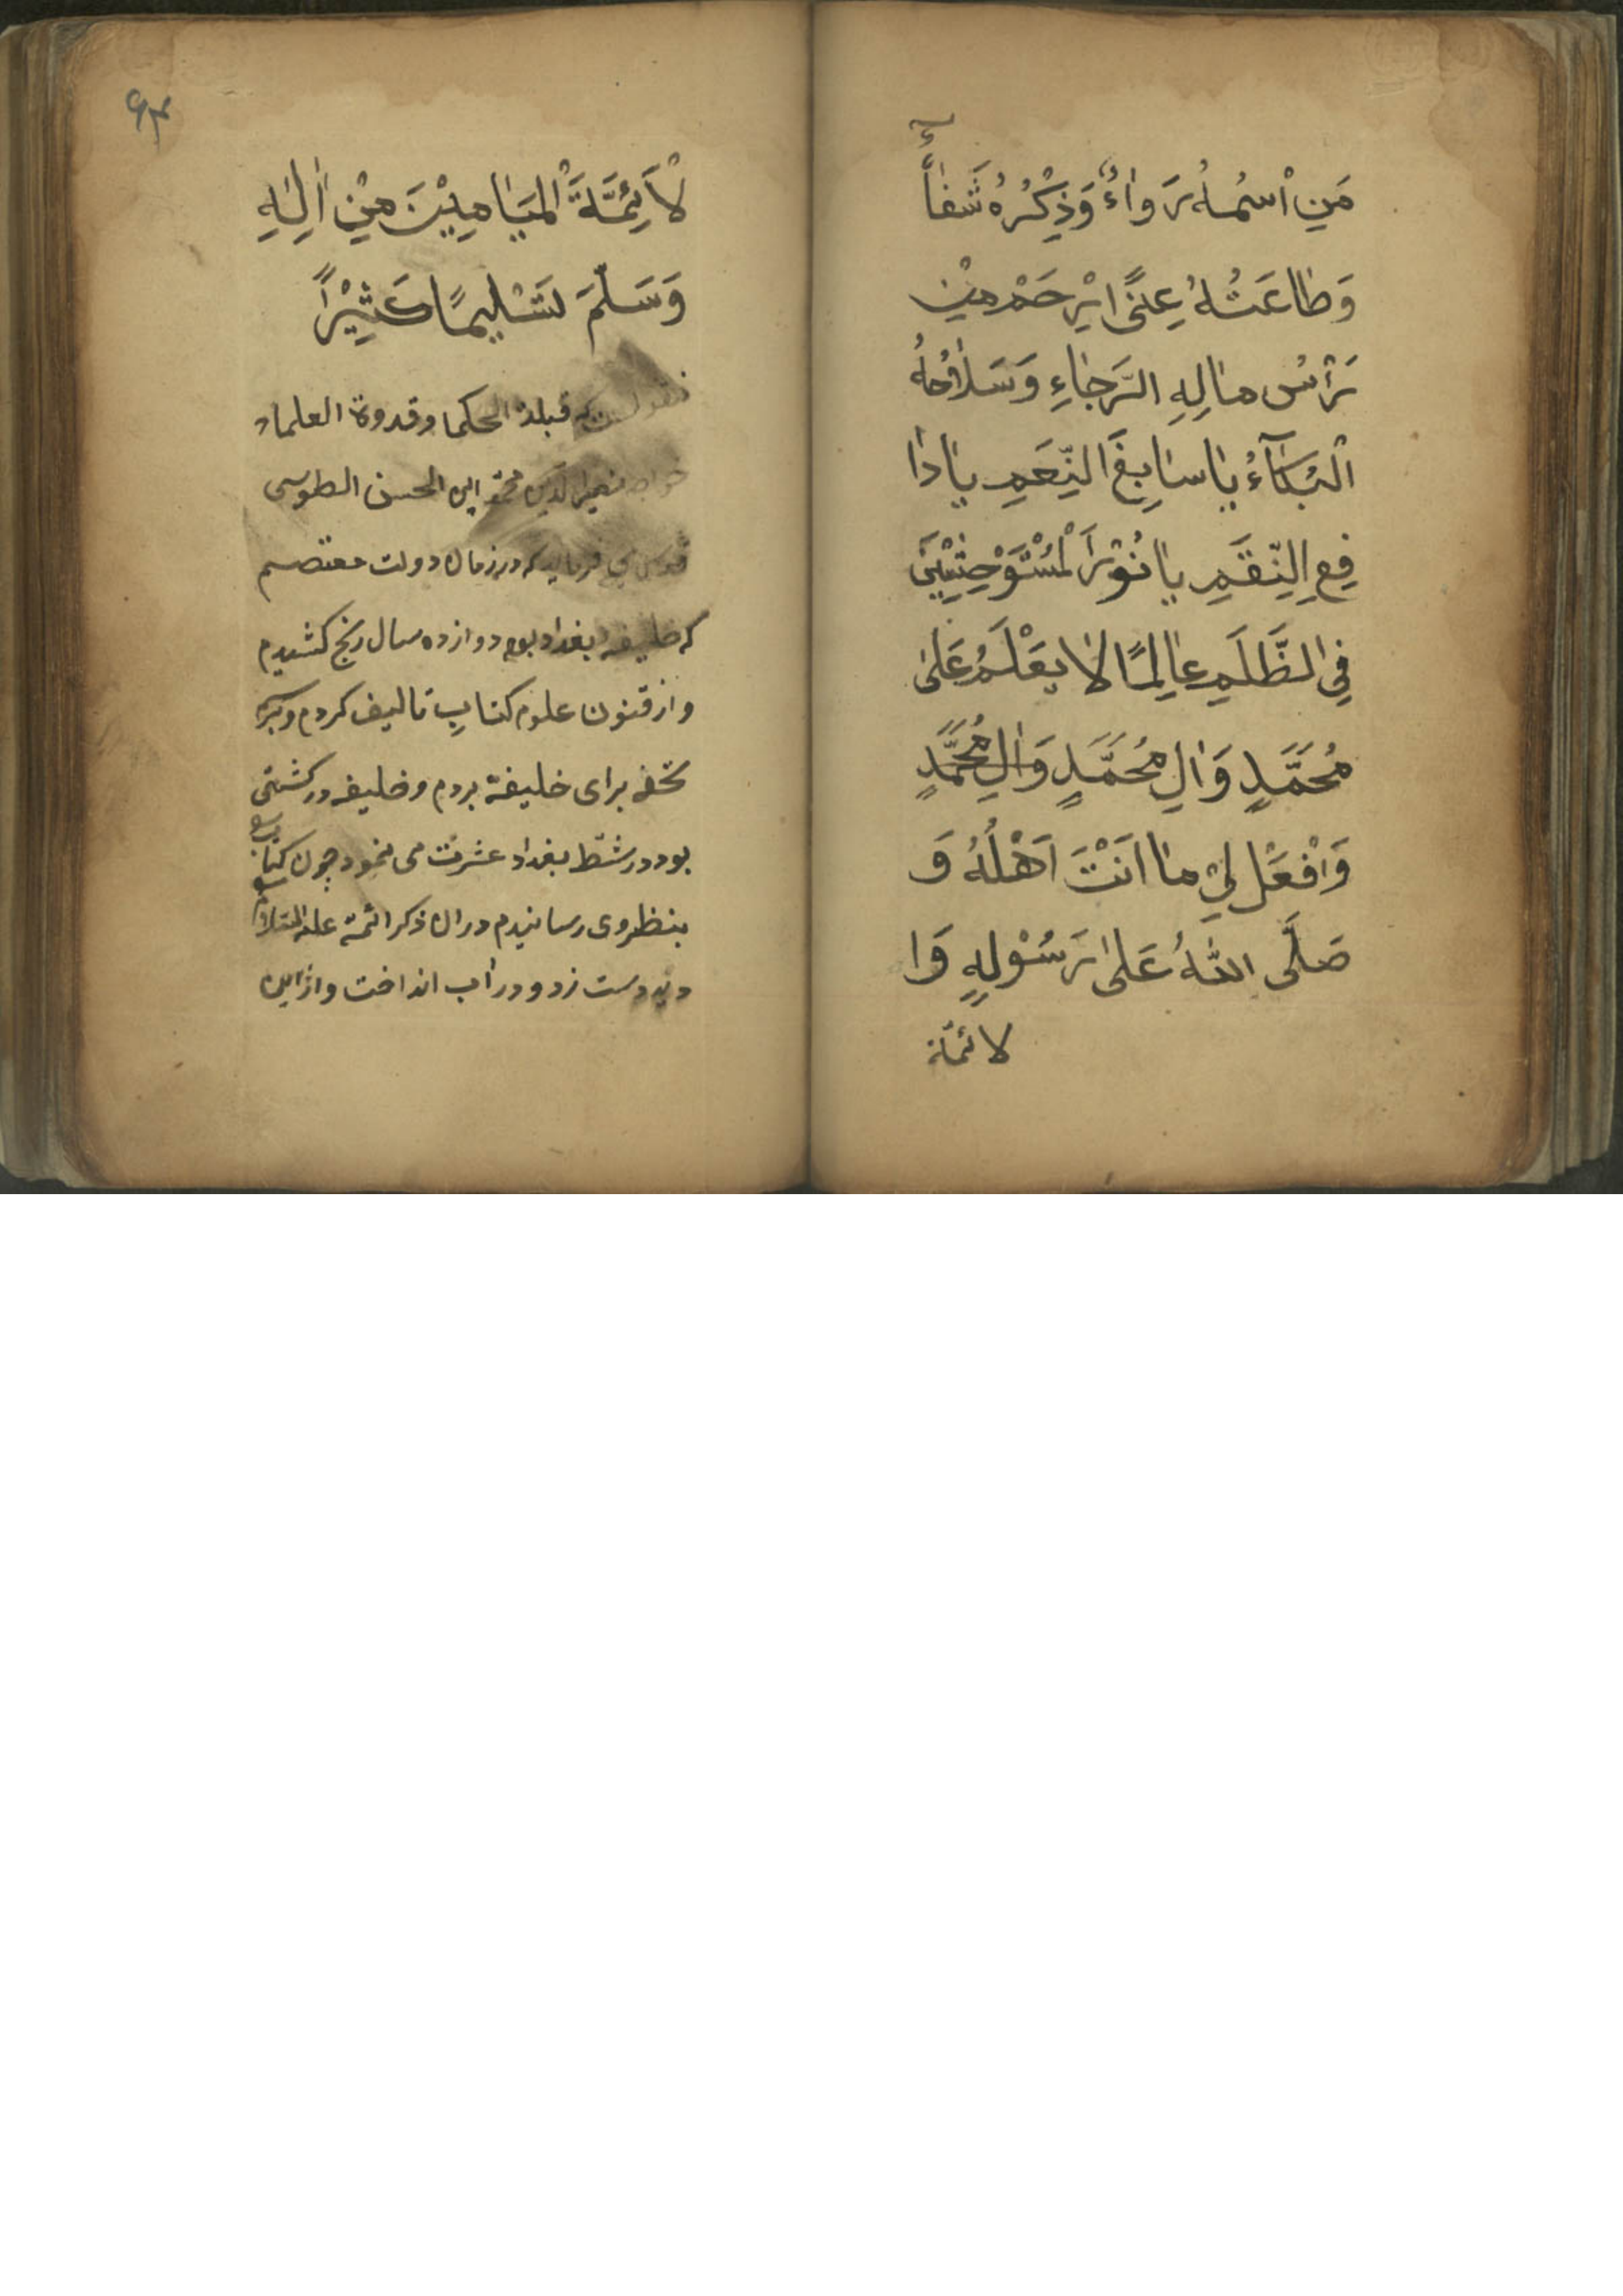 مَنِ اسْمُهُ دَوَاءٌ وَذِكْرُهُ شَفٰاءٌ
وَطٰاعَتُهُ غِنًى اِرْحَمْ مَنْ
رَأْسُ مٰالِهِ الرَّجٰاءِ وَسَلاٰحُهُ
الْبُكٰآءُ يٰا سٰابِغَ النِّعَمِ يٰا دٰا
فِعِ النِّقَمِ يٰا نُوْرَ الْمُسْتَوْحِشِيْنَ
فِى الظُّلَمِ عٰالِمًا لاٰ يُعَلَّمُ عَلىٰ
مُحَمَّدٍ وَاٰلِ مُحَمَّدٍ وَاٰلِ مُحَمَّدٍ
وَافْعَلْ لِيْ مٰا اَنْتَ اَهْلُهُ وَ
صَلَّى اللّٰهُ عَلىٰ رَسُوْلِهِ وَا
لائمّة
٦٣
لْاَئِمَّةَ الْمَيٰامِيْنَ مِنْ اٰلِهِ
وَسَلَّمَ تَسْلِيمًا كَثِيْرًا
منقولست كه قبلة الحكما وقدوة العلماء
خواجه نصير الدين محمد ابن الحسن الطوسى
مى فرمايد كه در زمان دولت معتصم
كه خليفه بغداد بود دوازده سال رنج كشيدم
و از فنون علوم كتاب تاليف كردم و
تحفه براى خليفة بردم و خليفه در كشتى
بود در شط بغداد عشرت مى نمود چون كتاب
بنظر وى رسانيدم در ان ذكر ائمة عليهم السلام
ديد دست زد و در آب انداخت و از اين